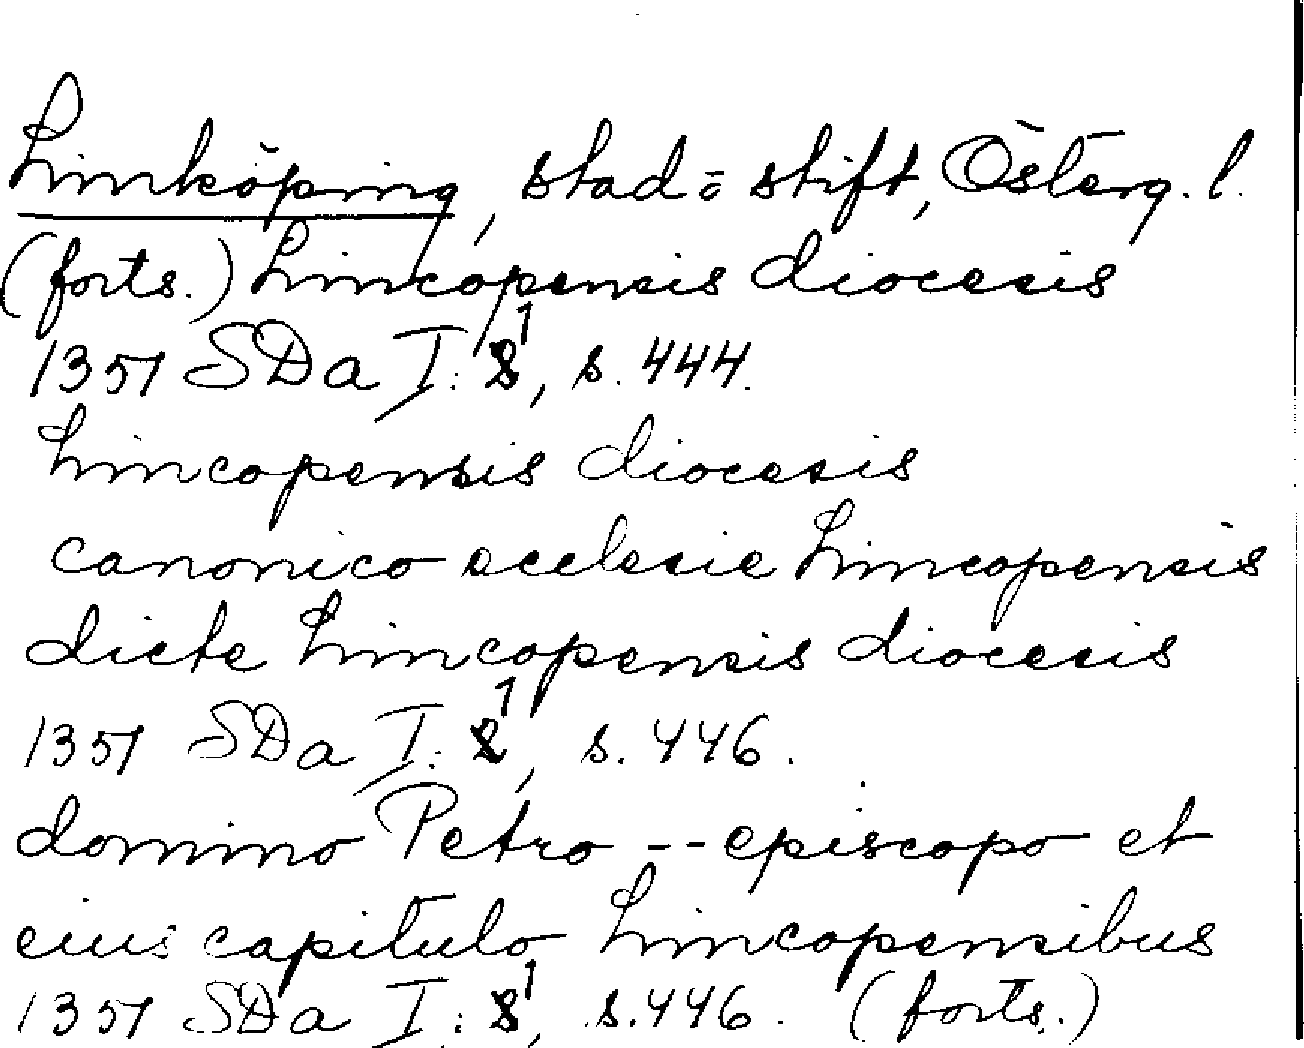 Linköping, stad o stift, Österg. l.
(forts.) Lincopensis diocesis
1357 SDa I: 1, s. 444.
Lincopensis diocesis
canonico ecclesie Lincopensis
dicte Lincopensis diocesis
1357 SDa I: 1, s. 446.
domino Petro -- episcopo et
eius capitulo Lincopensibus
1357 SDa I: 1, s. 446. (forts.)